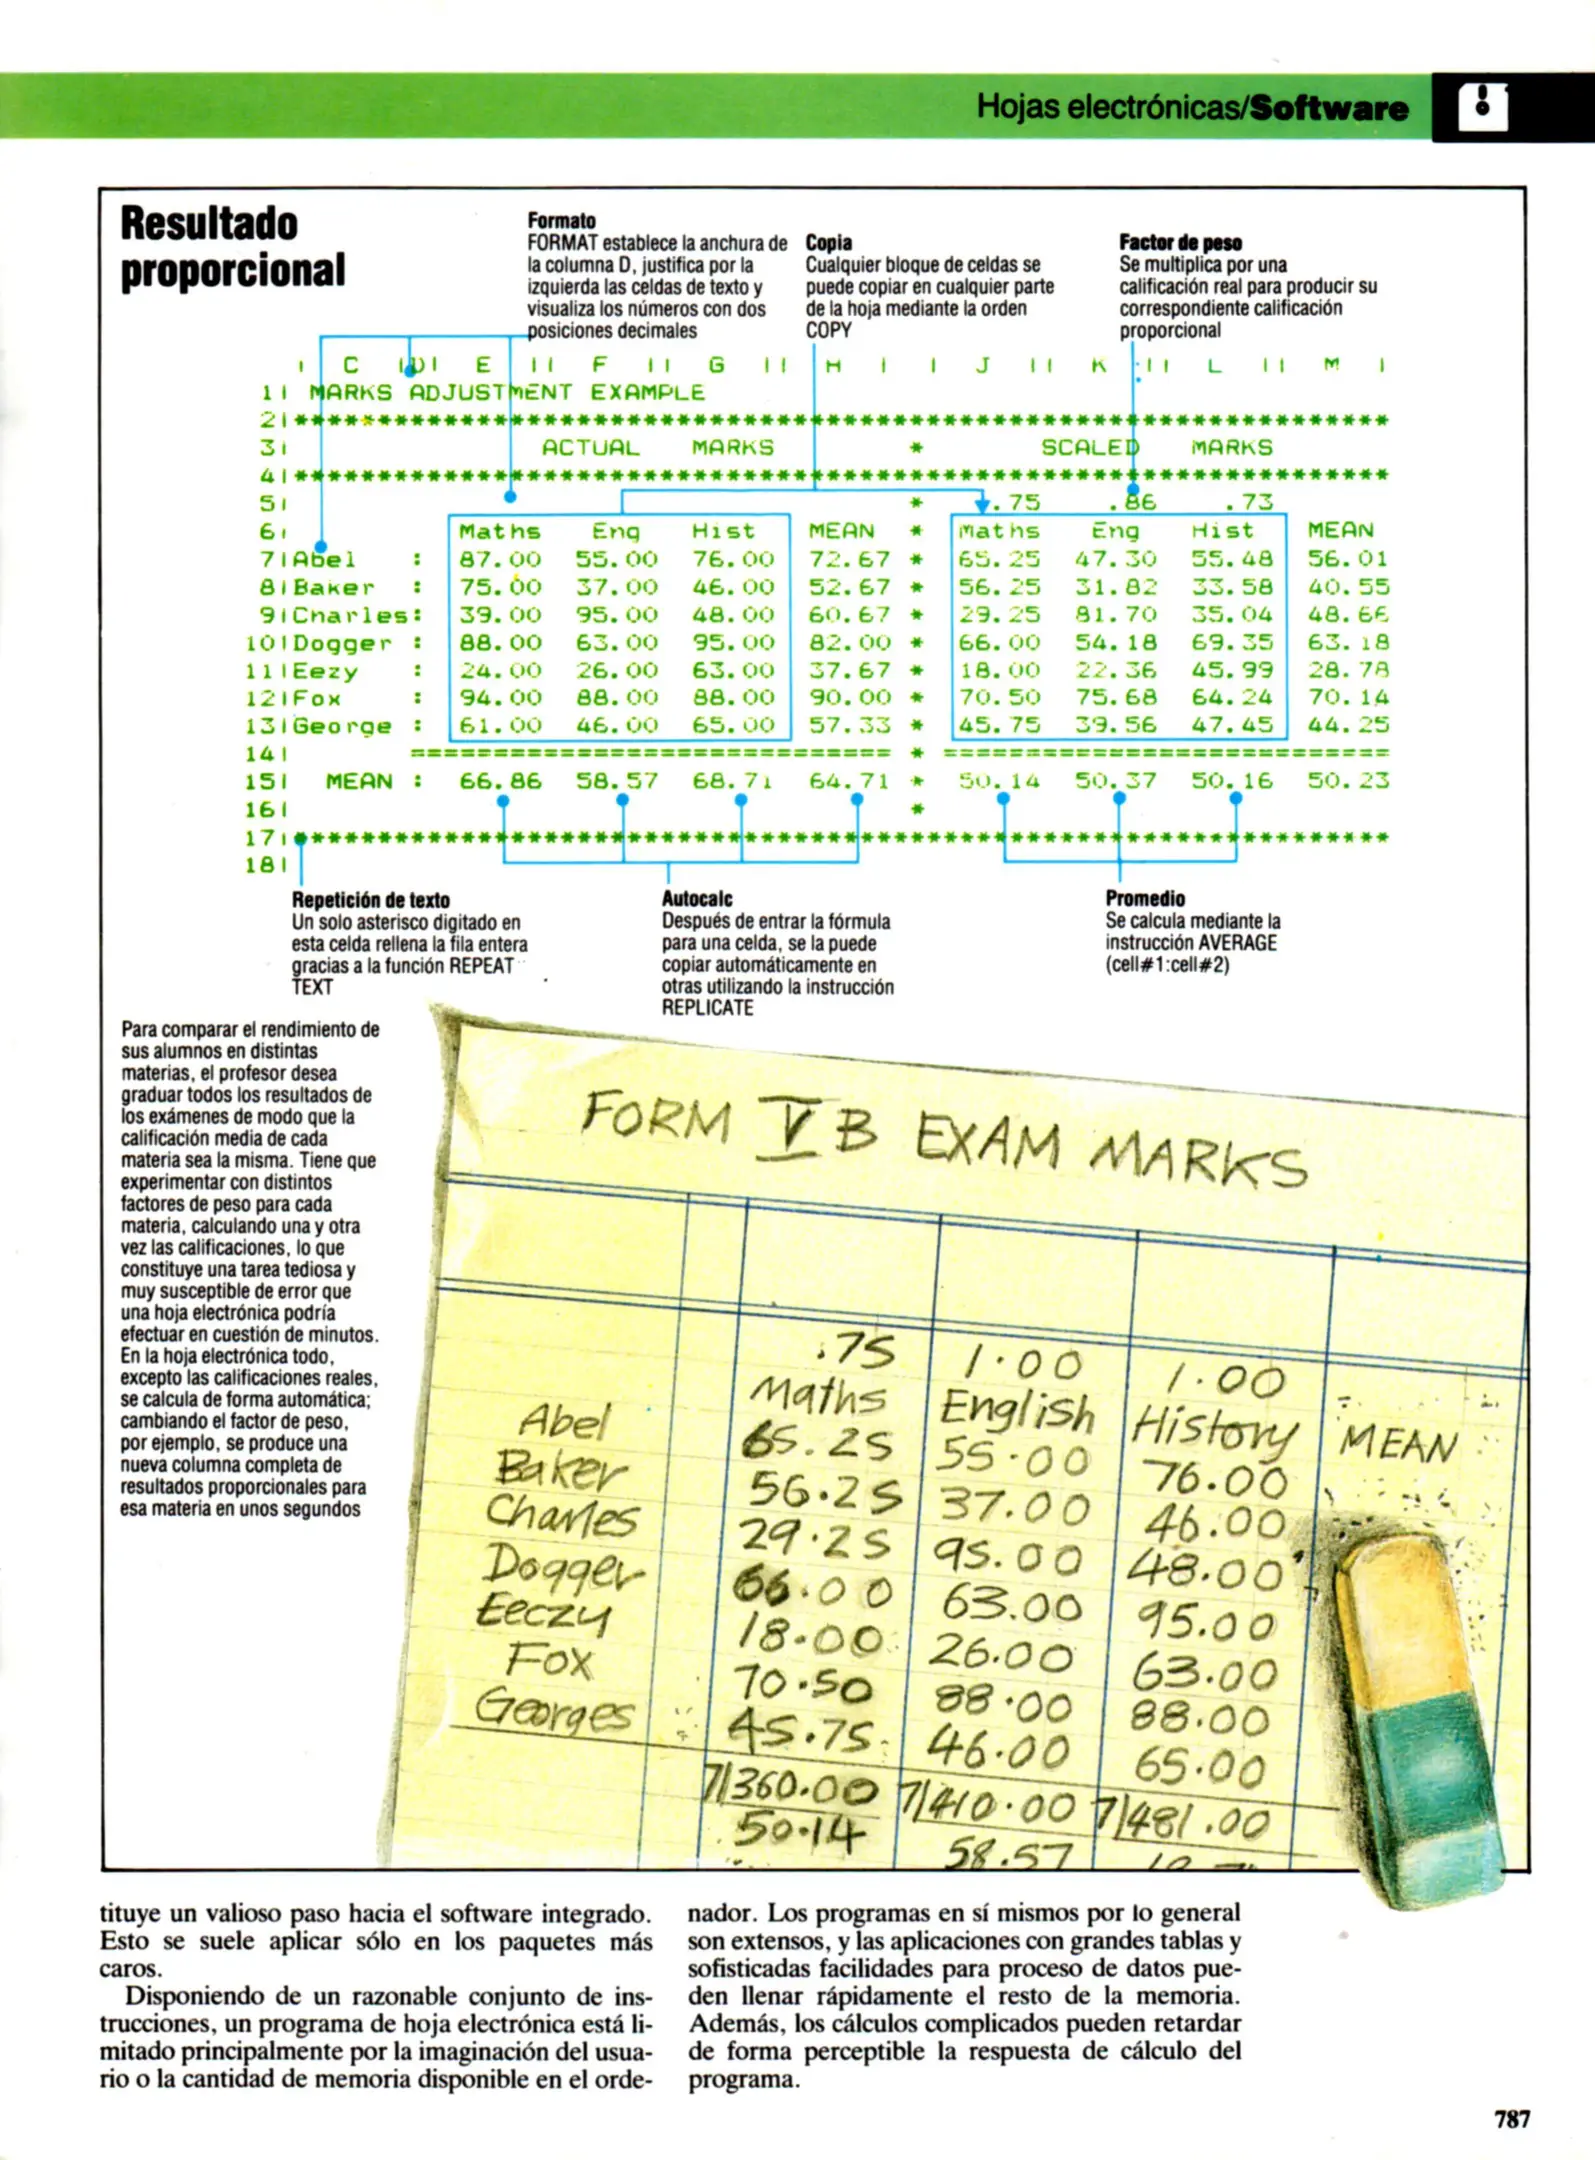 Hojas electrónicas/Software
Resultado
proporcional
Formato
FORMAT establece la anchura de
la columna D, justifica por la
izquierda las celdas de texto y
visualiza los números con dos
posiciones decimales
Copia
Cualquier bloque de celdas se
puede copiar en cualquier parte
de la hoja mediante la orden
COPY
Factor de peso
Se multiplica por una
calificación real para producir su
correspondiente calificación
proporcional
C D E F G H J K L M
1 MARKS ADJUSTMENT EXAMPLE
2 ********************************************************************
3 ACTUAL MARKS * SCALED MARKS
4 ********************************************************************
5 * .75 .86 .73
6 Maths Eng Hist MEAN * Maths Eng Hist MEAN
7 Abel : 87.00 55.00 76.00 72.67 * 65.25 47.30 55.48 56.01
8 Baker : 75.00 37.00 46.00 52.67 * 56.25 31.82 33.58 40.55
9 Charles: 39.00 95.00 48.00 60.67 * 29.25 81.70 35.04 48.66
10 Dogger : 88.00 63.00 95.00 82.00 * 66.00 54.18 69.35 63.18
11 Eezy : 24.00 26.00 63.00 37.67 * 18.00 22.36 45.99 28.78
12 Fox : 94.00 88.00 88.00 90.00 * 70.50 75.68 64.24 70.14
13 George : 61.00 46.00 65.00 57.33 * 45.75 39.56 47.45 44.25
14 ============================== * ======================
15 MEAN : 66.86 58.57 68.71 64.71 * 50.14 50.37 50.16 50.23
16 *
17 ********************************************************************
18
Repetición de texto
Un solo asterisco digitado en
esta celda rellena la fila entera
gracias a la función REPEAT
TEXT
Autocalc
Después de entrar la fórmula
para una celda, se la puede
copiar automáticamente en
otras utilizando la instrucción
REPLICATE
Promedio
Se calcula mediante la
instrucción AVERAGE
(cell#1:cell#2)
Para comparar el rendimiento de
sus alumnos en distintas
materias, el profesor desea
graduar todos los resultados de
los exámenes de modo que la
calificación media de cada
materia sea la misma. Tiene que
experimentar con distintos
factores de peso para cada
materia, calculando una y otra
vez las calificaciones, lo que
constituye una tarea tediosa y
muy susceptible de error que
una hoja electrónica podría
efectuar en cuestión de minutos.
En la hoja electrónica todo,
excepto las calificaciones reales,
se calcula de forma automática;
cambiando el factor de peso,
por ejemplo, se produce una
nueva columna completa de
resultados proporcionales para
esa materia en unos segundos
FORM V B EXAM MARKS
.75 1.00 1.00
Maths English History MEAN
Abel 65.25 55.00 76.00
Baker 56.25 37.00 46.00
Charles 29.25 95.00 48.00
Dogger 66.00 63.00 95.00
Eeczy 18.00 26.00 63.00
Fox 70.50 88.00 88.00
Georges 45.75 46.00 65.00
7|360.00 7|410.00 7|481.00
50.14 58.57
tituye un valioso paso hacia el software integrado.
Esto se suele aplicar sólo en los paquetes más
caros.
Disponiendo de un razonable conjunto de ins-
trucciones, un programa de hoja electrónica está li-
mitado principalmente por la imaginación del usua-
rio o la cantidad de memoria disponible en el orde-
nador. Los programas en sí mismos por lo general
son extensos, y las aplicaciones con grandes tablas y
sofisticadas facilidades para proceso de datos pue-
den llenar rápidamente el resto de la memoria.
Además, los cálculos complicados pueden retardar
de forma perceptible la respuesta de cálculo del
programa.
787